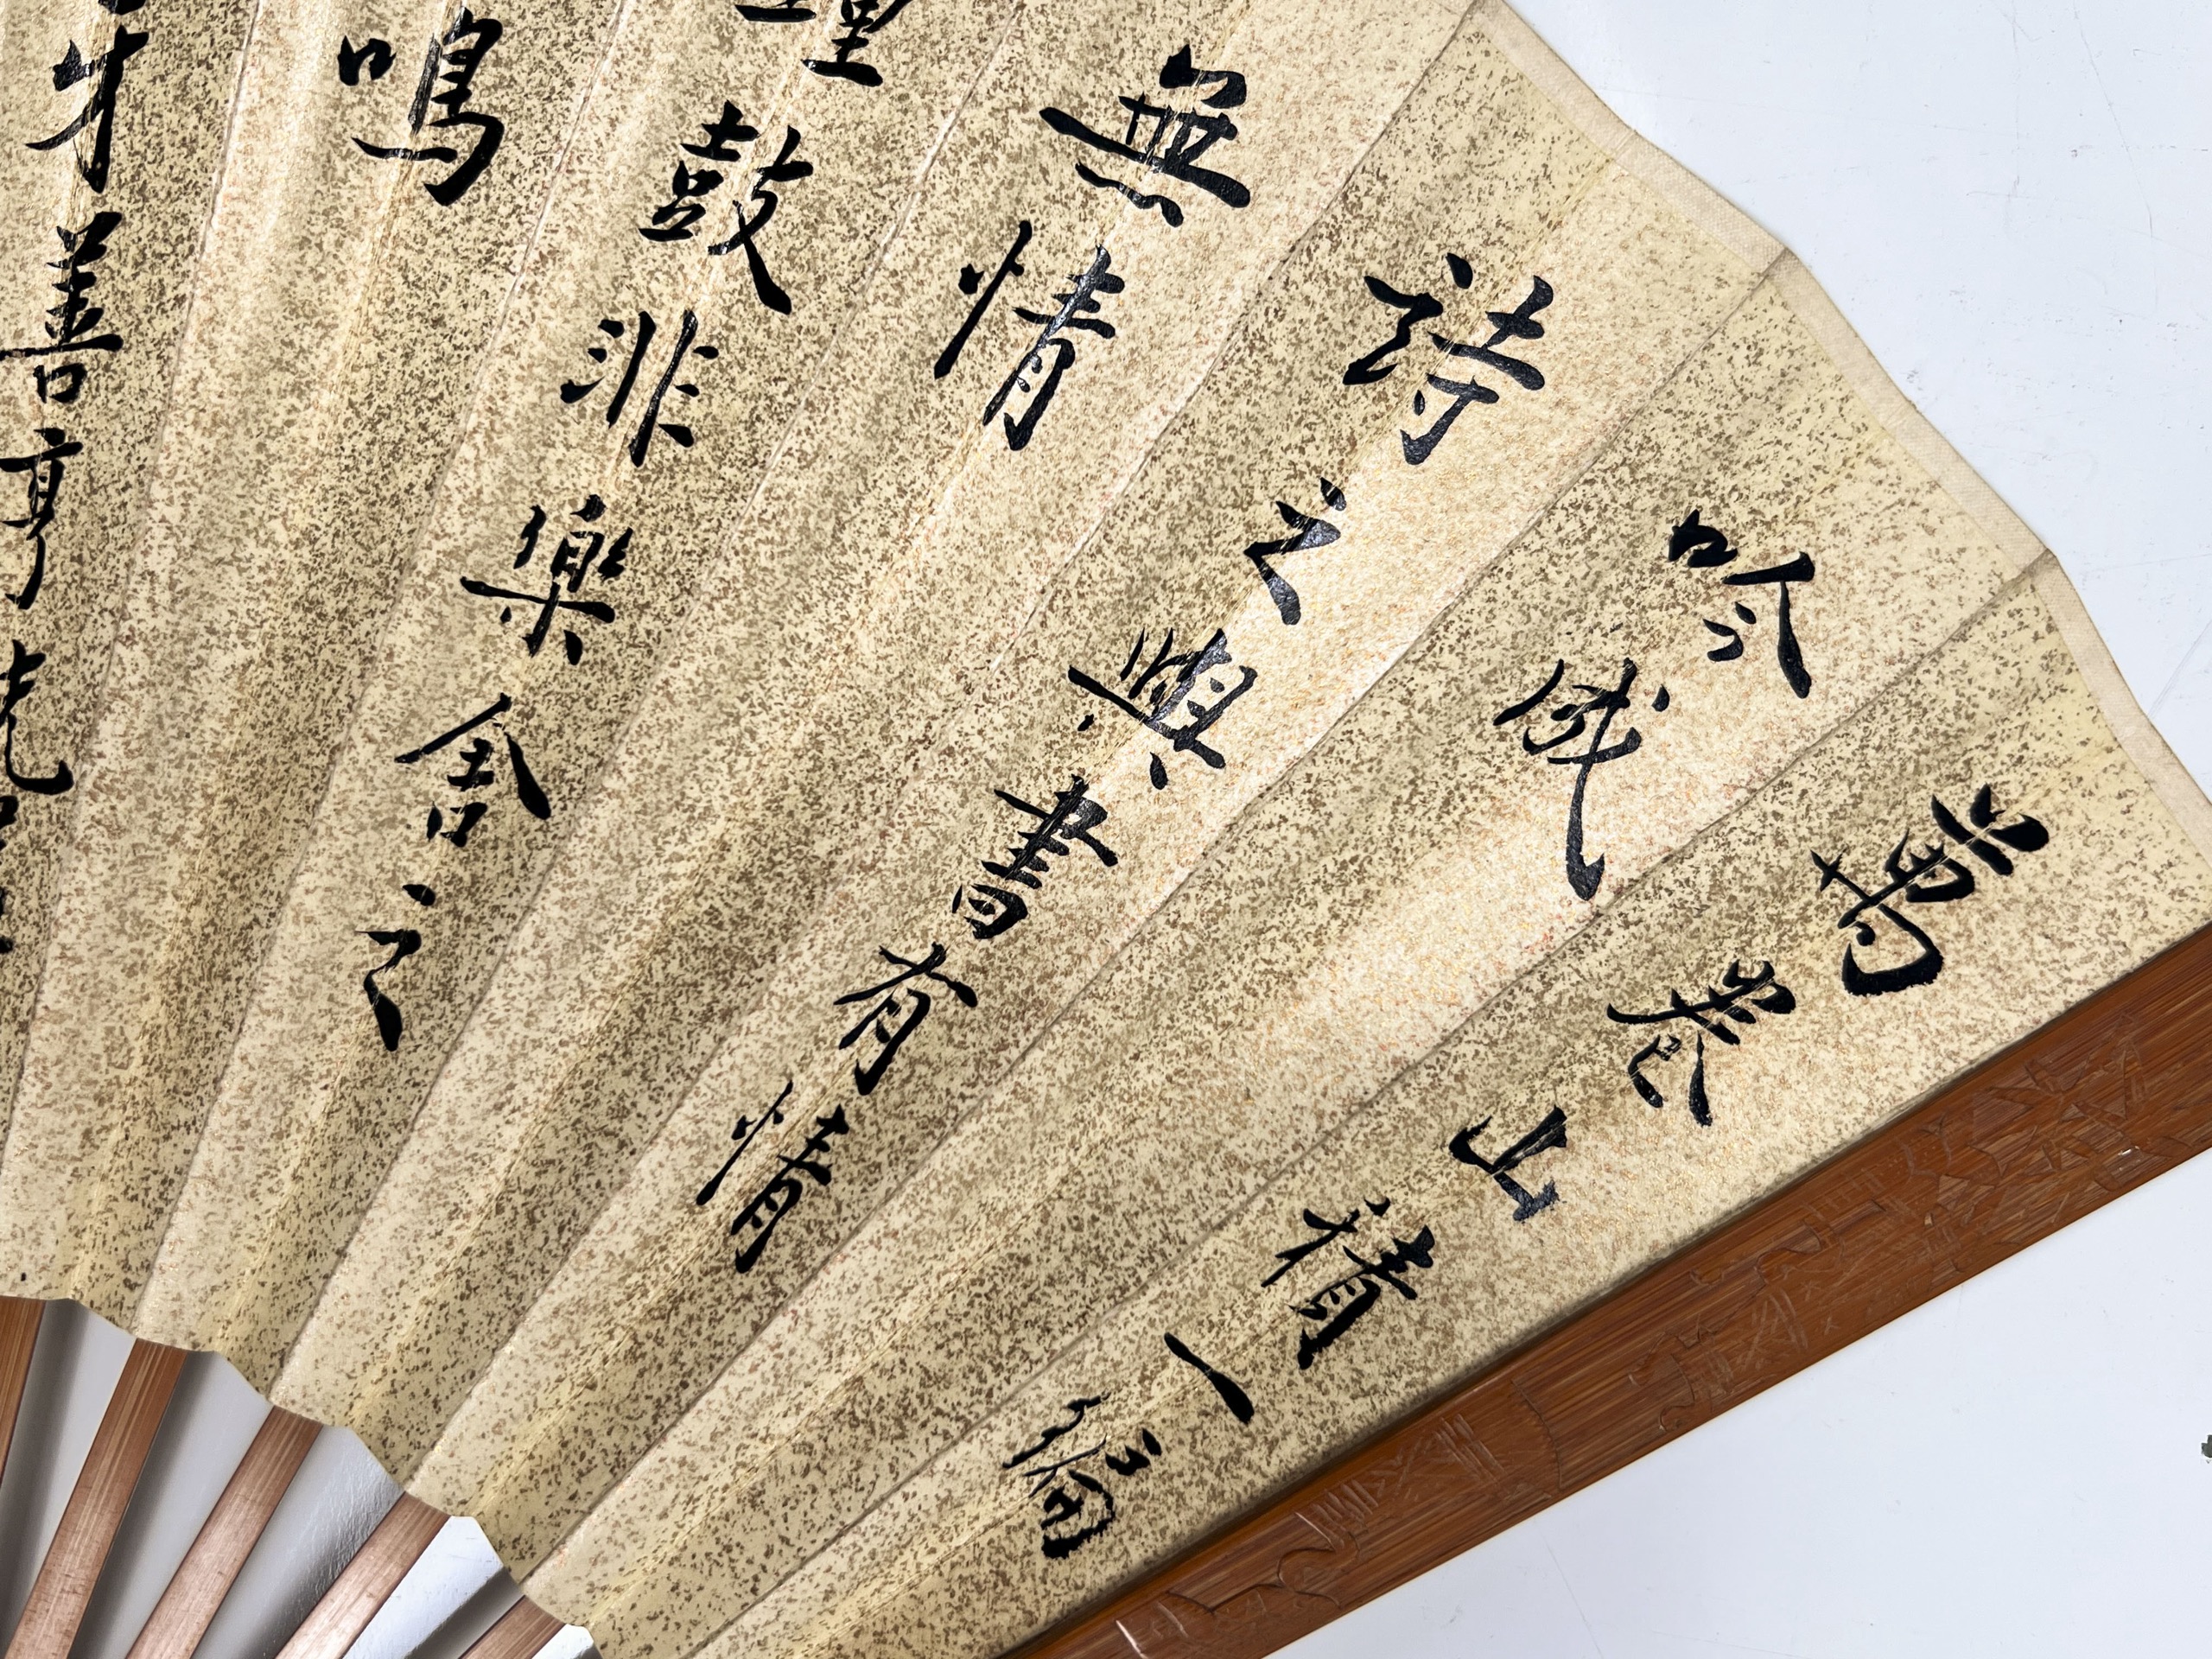 萬卷山積一篇
吟成
詩之與書有情
無情
鼓非樂舍之
鳴
牙善亨先